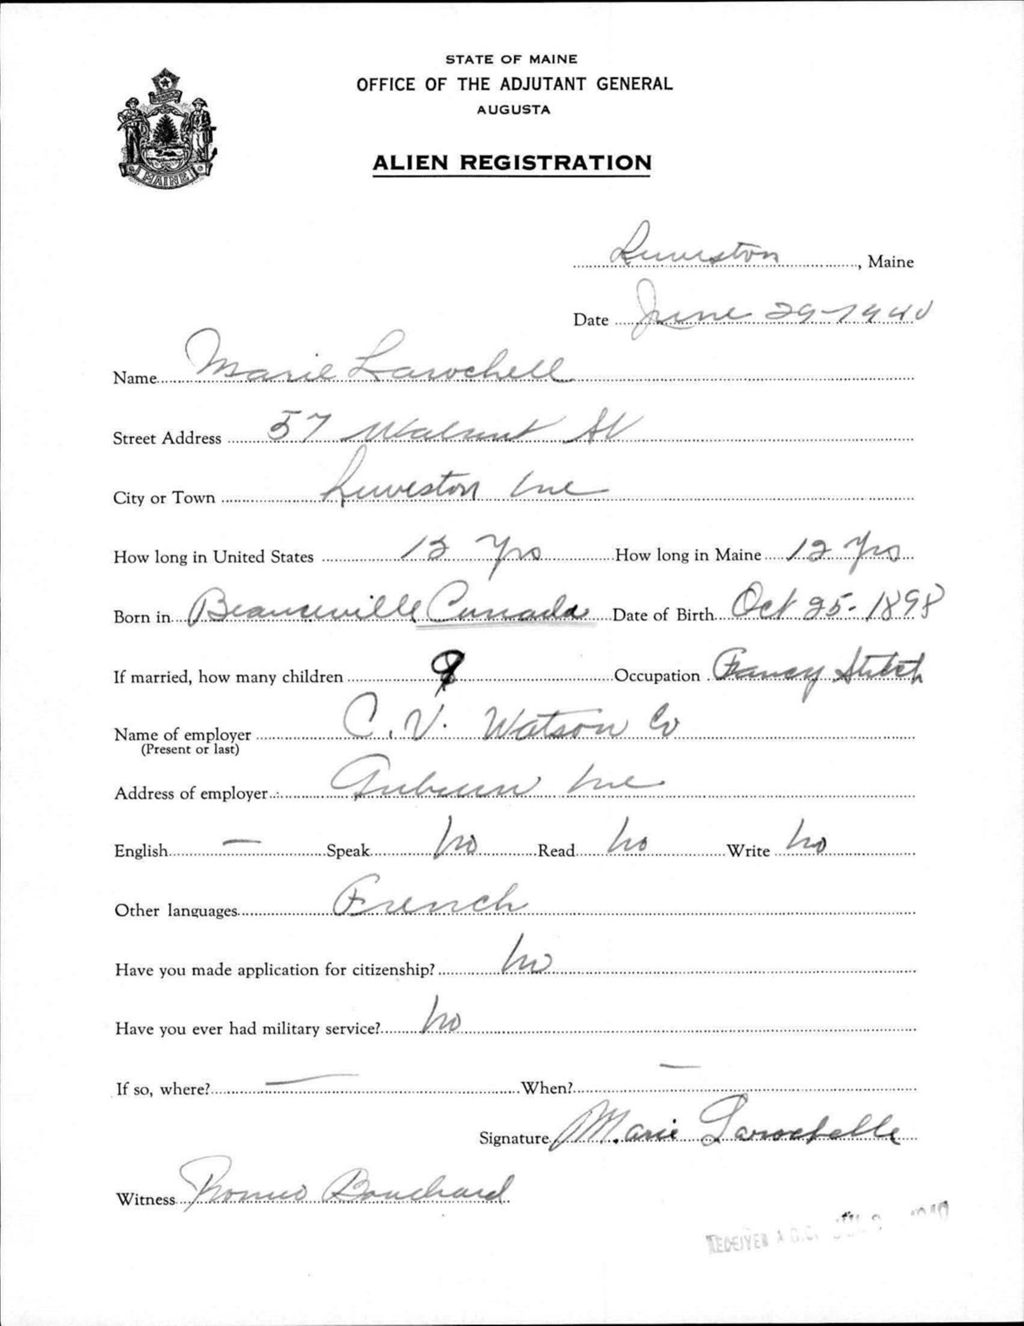 STATE OF MAINE
OFFICE OF THE ADJUTANT GENERAL
AUGUSTA
ALIEN REGISTRATION
MAINE
Lewiston, Maine
Date June 29-1940
Name Marie Larochell
Street Address 57 Walnut St
City or Town Lewiston Me
How long in United States 12 Yrs How long in Maine 12 Yrs
Born in Beauceville Canada Date of Birth Oct 25-1898
If married, how many children 9 Occupation Fancy Stitch
Name of employer C. V. Watson Co
(Present or last)
Address of employer Auburn Me
English — Speak no Read no Write no
Other languages French
Have you made application for citizenship? no
Have you ever had military service? no
If so, where? — When? —
Signature Marie Larochelle
Witness Romeo Bouchard
RECEIVED A.G.O. JUL 1940